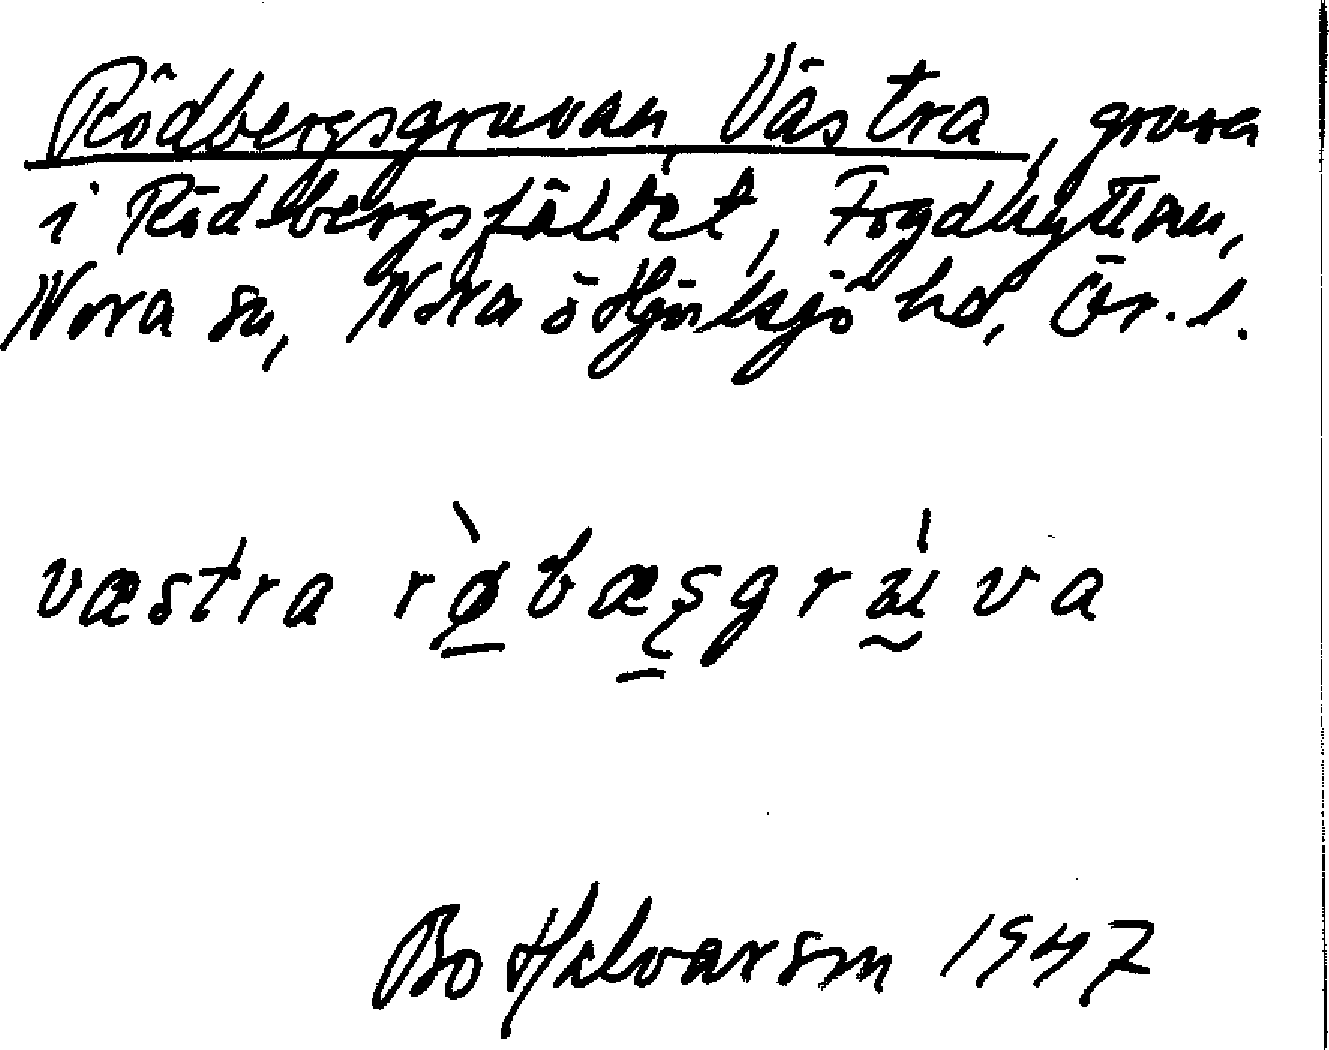 Rödbergsgruvan, Västra, gruva
i Rödbergsfältet, Fogdhyttan,
Nora sn, Nora o Hjulsjö hd, Ör. l.
væstra rø̀bæşgrʉ́va
Bo Halvarson 1947